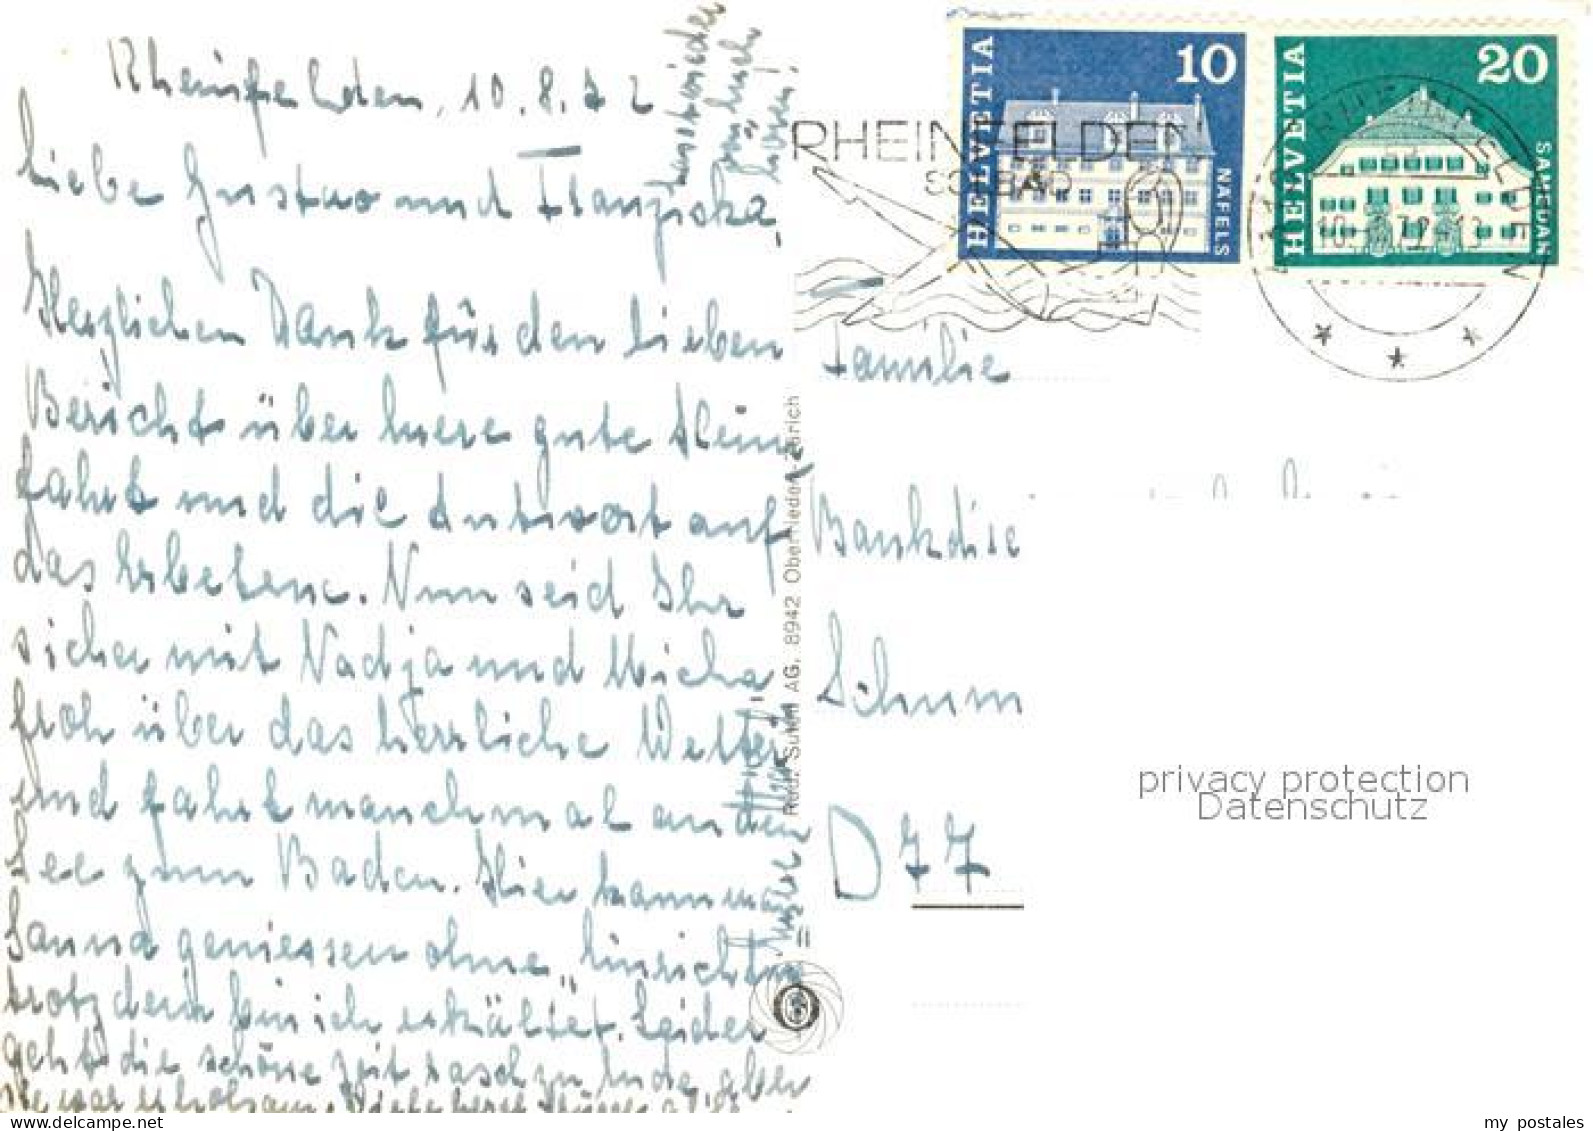 Rheinfelden, 10.8.72
Liebe Gustav und Franziska,
Herzlichen Dank für den lieben
Bericht über Eure gute Heim
fahrt und die Antwort auf
das Erbetene. Nun seid Ihr
sicher mit Nadja und Micha
froh über das herrliche Wetter
und fahrt manchmal an den
See zum Baden. Hier kann man
Sauna geniessen ohne
trotzdem bin ich erkältet. Leider
geht die schöne Zeit rasch zu Ende, aber
sie war erholsam.
HELVETIA
10
NÄFELS
HELVETIA
20
SAMEDAN
RHEINFELDEN
SOLBAD
RHEINFELDEN
Familie
Bankdire
Schum
D 77
Rud. Suter AG. 8942 Oberrieden-Zürich
privacy protection
Datenschutz
www.delcampe.net
my_postales